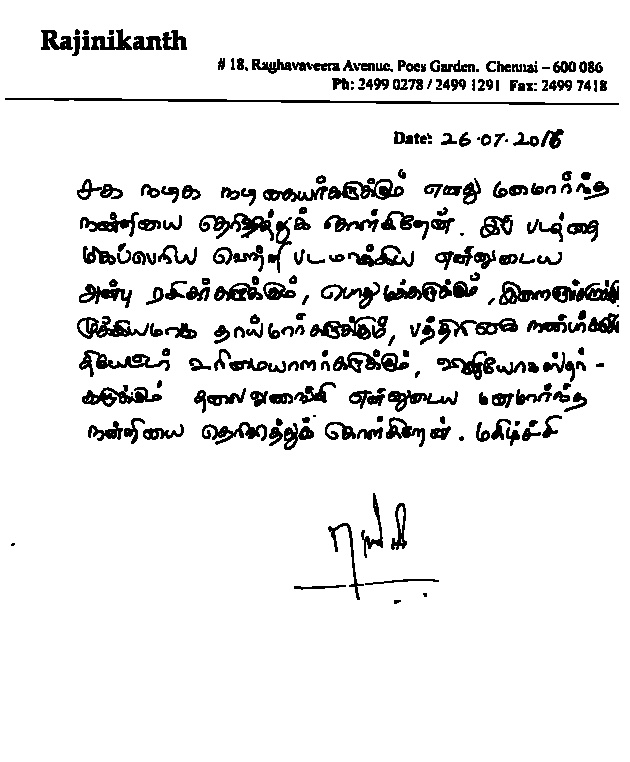 Rajinikanth
# 18, Raghavaveera Avenue, Poes Garden, Chennai – 600 086
Ph: 2499 0278 / 2499 1291 Fax: 2499 7418
Date: 26.07.2016
சக நடிக நடிகையர்களுக்கும் எனது மனமார்ந்த
நன்றியை தெரிவித்துக் கொள்கிறேன். இப் படத்தை
மிகப்பெரிய வெற்றி படமாக்கிய என்னுடைய
அன்பு ரசிகர்களுக்கும், பொதுமக்களுக்கும்,
முக்கியமாக தாய்மார்களுக்கும், பத்திரிகை
தியேட்டர் உரிமையாளர்களுக்கும், விநியோகஸ்தர்-
களுக்கும் தலைவணங்கி என்னுடைய மனமார்ந்த
நன்றியை தெரிவித்துக் கொள்கிறேன். மகிழ்ச்சி